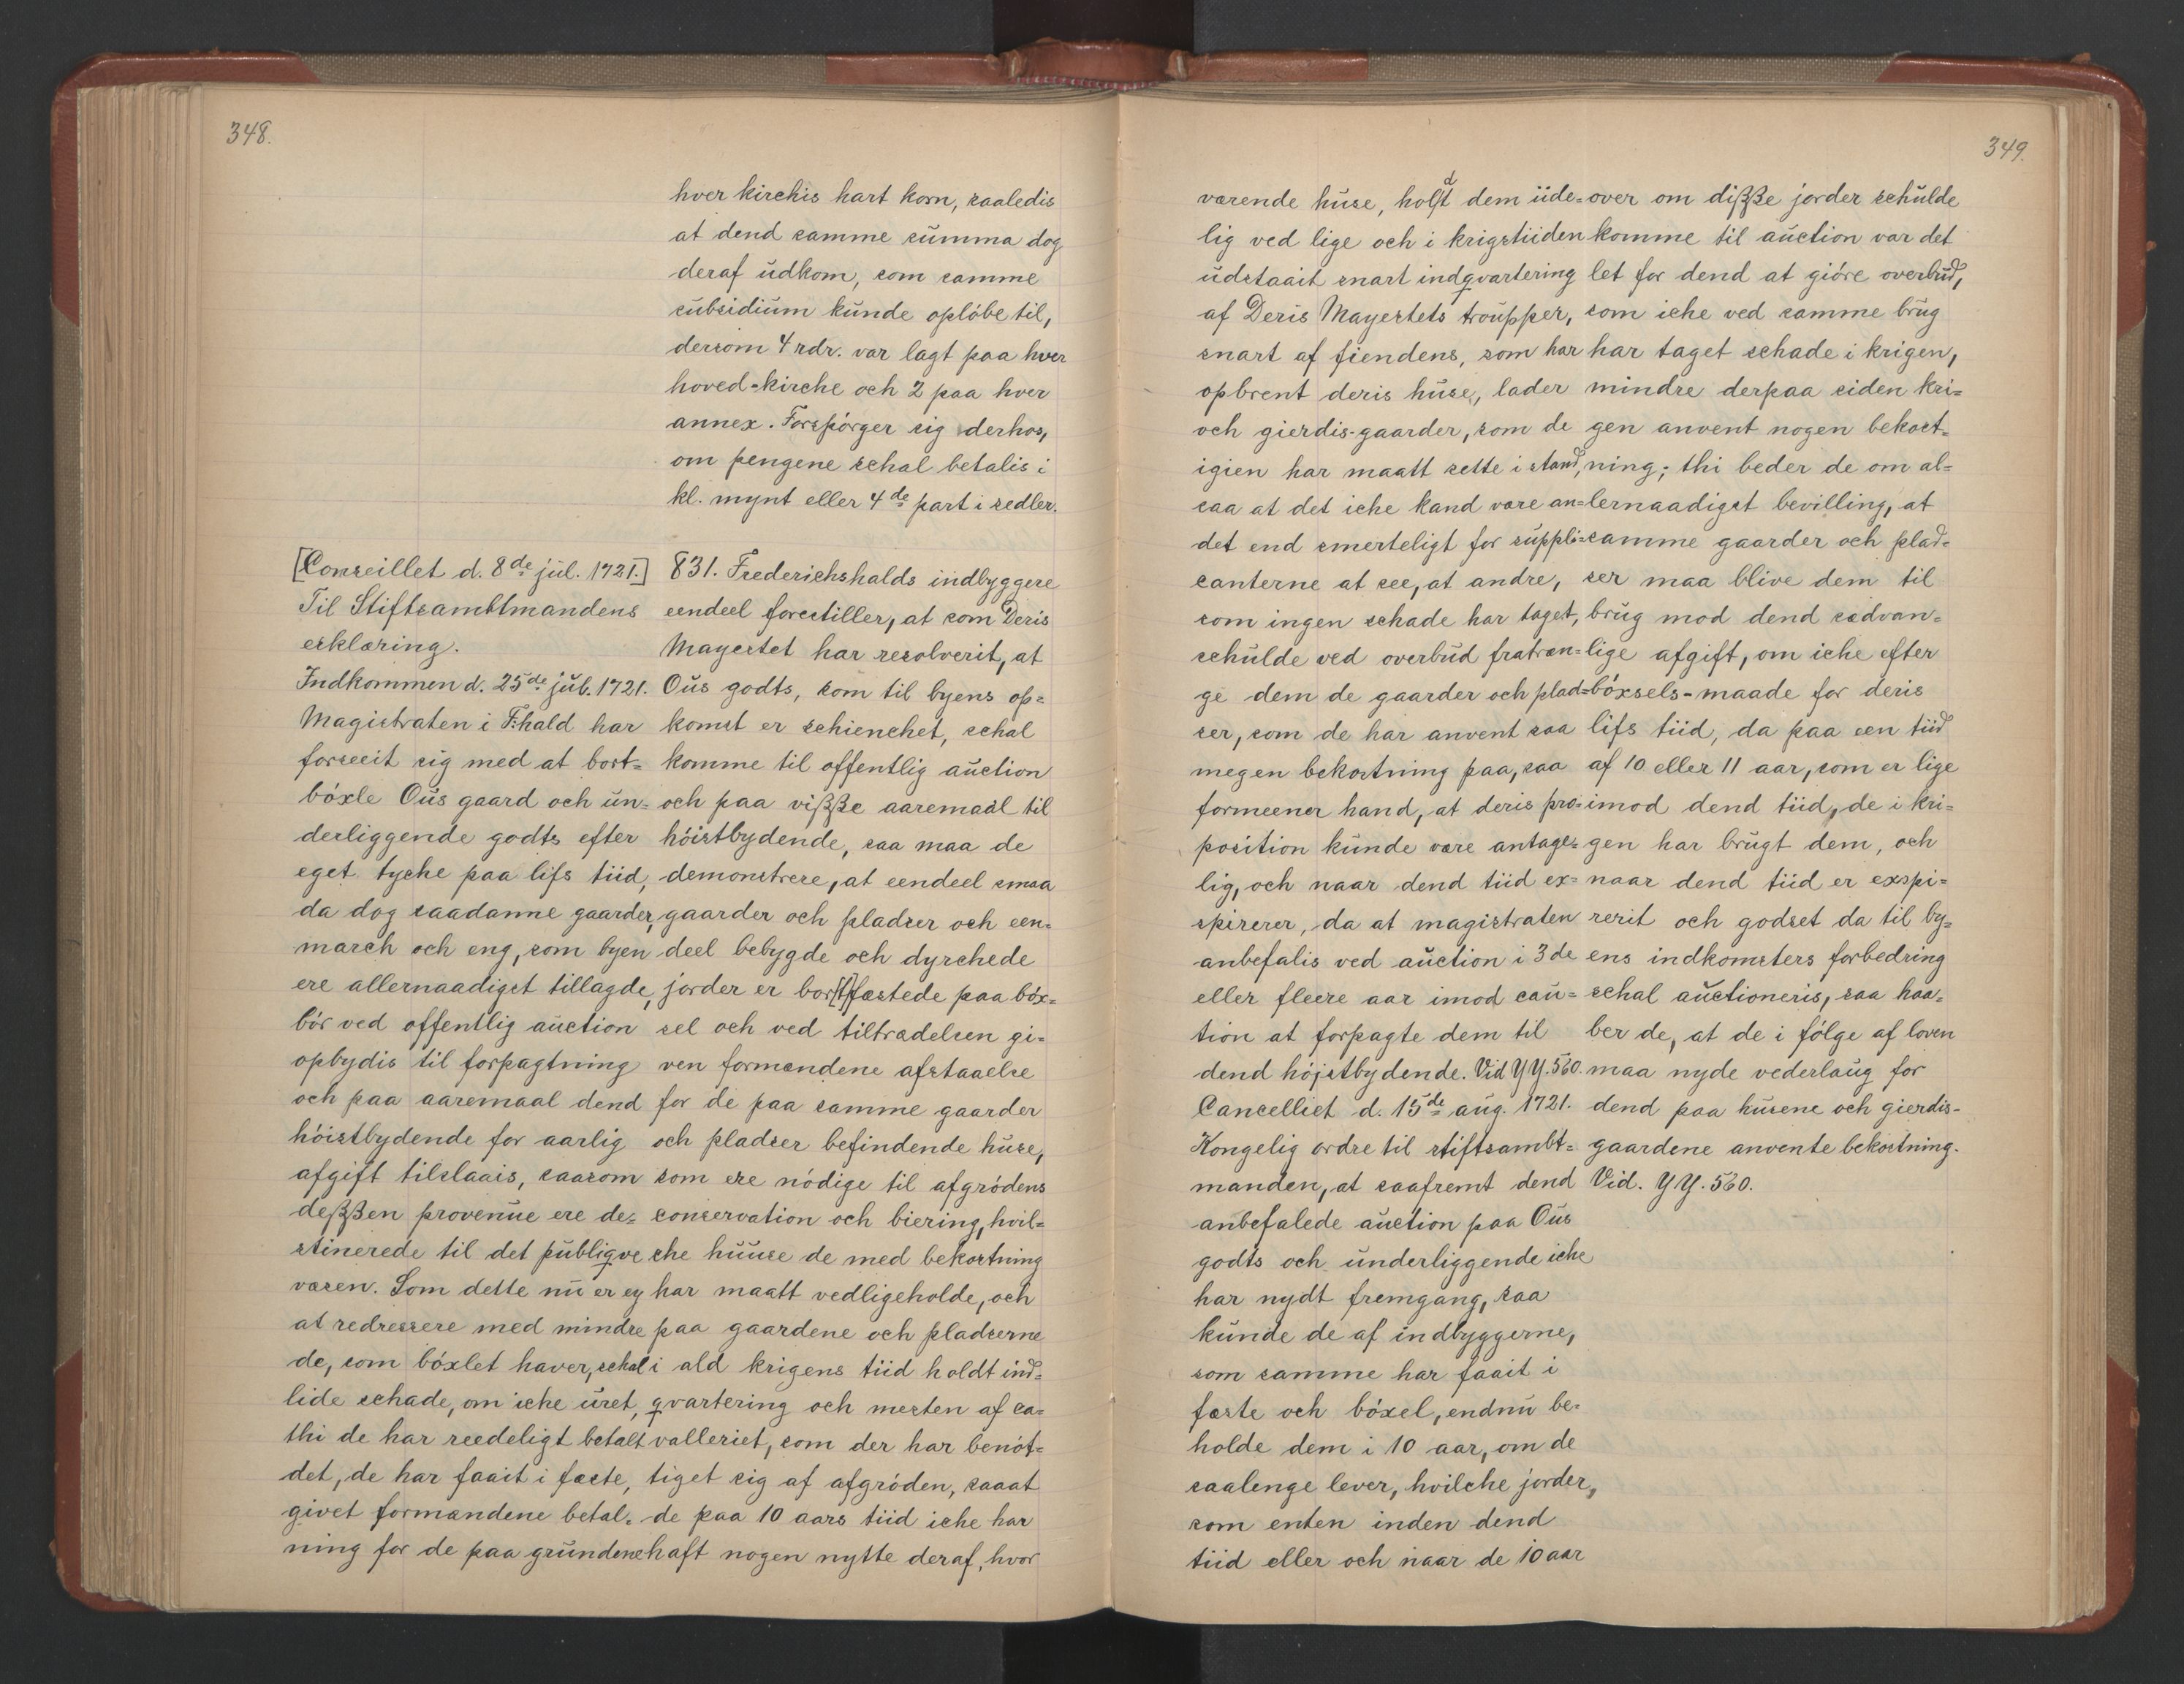 348.
hver kirchis hart korn, saaledis
at dend samme summa dog
deraf ŭdkom, som samme
sŭbsidiŭm kŭnde opløbe til,
dersom 4 rdr. var lagt paa hver
hoved-kirche och 2 paa hver
annex. Forspørger sig derhos,
om pengene schal betalis i
kl. mynt eller 4de part i sedler.
[Conseillet d. 8de jŭl. 1721.]
Til Stiftsambtmandens
erklæring.
Indkommen d. 25de jŭl. 1721.
Magistraten i F:hald har
forseeit sig med at bort-
bøxle Oŭs gaard och ŭn-
derliggende godts efter
eget tyche paa lifs tiid,
da dog saadanne gaarder,
march och eng, som byen
ere allernaadigst tillagde,
bør ved offentlig aŭction
opbydis til forpagtning
och paa aaremaal dend
høistbydende for aarlig
afgift tilslaais, saasom
deßßen provenŭe ere de-
stinerede til det pŭbliqve
væsen. Som dette nŭ er ey
at redressere med mindre
de, som bøxlet haver, schal
lide schade, om iche ŭret,
thi de har reedeligt betalt
det, de har faait i fæste,
givet formændene betal-
ning for de paa grŭndene
831. Frederichshalds indbyggere
eendeel forestiller, at som Deris
Mayestet har resolverit, at
Oŭs godts, som til byens op-
komst er schienchet, schal
komme til offentlig aŭction
och paa vißße aaremaal til
høistbydende, saa maa de
demonstrere, at eendeel smaa
gaarder och pladser och een-
deel bebygde och dyrchede
jorder er bor[t]fæstede paa bøx-
sel och ved tiltrædelsen gi-
ven formændene afstaaelse
for de paa samme gaarder
och pladser befindende hŭse,
som ere nødige til afgrødens
conservation och biering, hvil-
che hŭŭse de med bekostning
har maatt vedligeholde, och
paa gaardene och pladserne
i ald krigens tiid holdt ind-
qvartering och mesten af ca-
valleriet, som der har benøt-
tiget sig af afgrøden, saaat
de paa 10 aars tiid iche har
haft nogen nytte deraf, hvor
349.
værende hŭse, holdt dem ŭde-
lig ved lige och i krigstiiden
ŭdstaait snart indqvartering
af Deris Mayestets troŭpper,
snart af fiendens, som har
opbrent deris hŭse, lader
och gierdis-gaarder, som de
igien har maatt sette i stand,
saa at det iche kand være an-
det end smerteligt for sŭppli-
canterne at see, at andre,
som ingen schade har taget,
schŭlde ved overbŭd fratræn-
ge dem de gaarder och plad-
ser, som de har anvent saa
megen bekostning paa, saa
formeener hand, at deris pro-
position kŭnde være antage-
lig, och naar dend tiid ex-
spirerer, da at magistraten
anbefalis ved aŭction i 3de
eller fleere aar imod caŭ-
tion at forpagte dem til
dend højstbydende. Vid YY. 560.
Cancelliet d. 15de aŭg. 1721.
Kongelig ordre til stiftsambt-
manden, at saafremt dend
anbefalede aŭction paa Oŭs
godts och ŭnderliggende iche
har nydt fremgang, saa
kŭnde de af indbyggerne,
som samme har faait i
fæste och bøxel, endnŭ be-
holde dem i 10 aar, om de
saalenge lever, hvilche jorder,
som enten inden dend
tiid eller och naar de 10 aar
over om dißße jorder schŭlde
komme til aŭction var det
let for dend at giøre overbŭd,
som iche ved samme brŭg
har taget schade i krigen,
mindre derpaa siden kri-
gen anvent nogen bekost-
ning; thi beder de om al-
lernaadigst bevilling, at
samme gaarder och plad-
ser maa blive dem til
brŭg mod dend sædvan-
lige afgift, om iche efter
bøxsels-maade for deris
lifs tiid, da paa een tiid
af 10 eller 11 aar, som er lige
imod dend tiid, de i kri-
gen har brŭgt dem, och
naar dend tiid er exspi-
rerit och godset da til by-
ens indkomsters forbedring
schal aŭctioneris, saa haa-
ber de, at de i følge af loven
maa nyde vederlaŭg for
dend paa hŭsene och gierdis-
gaardene anvente bekostning.
Vid. YY. 560.